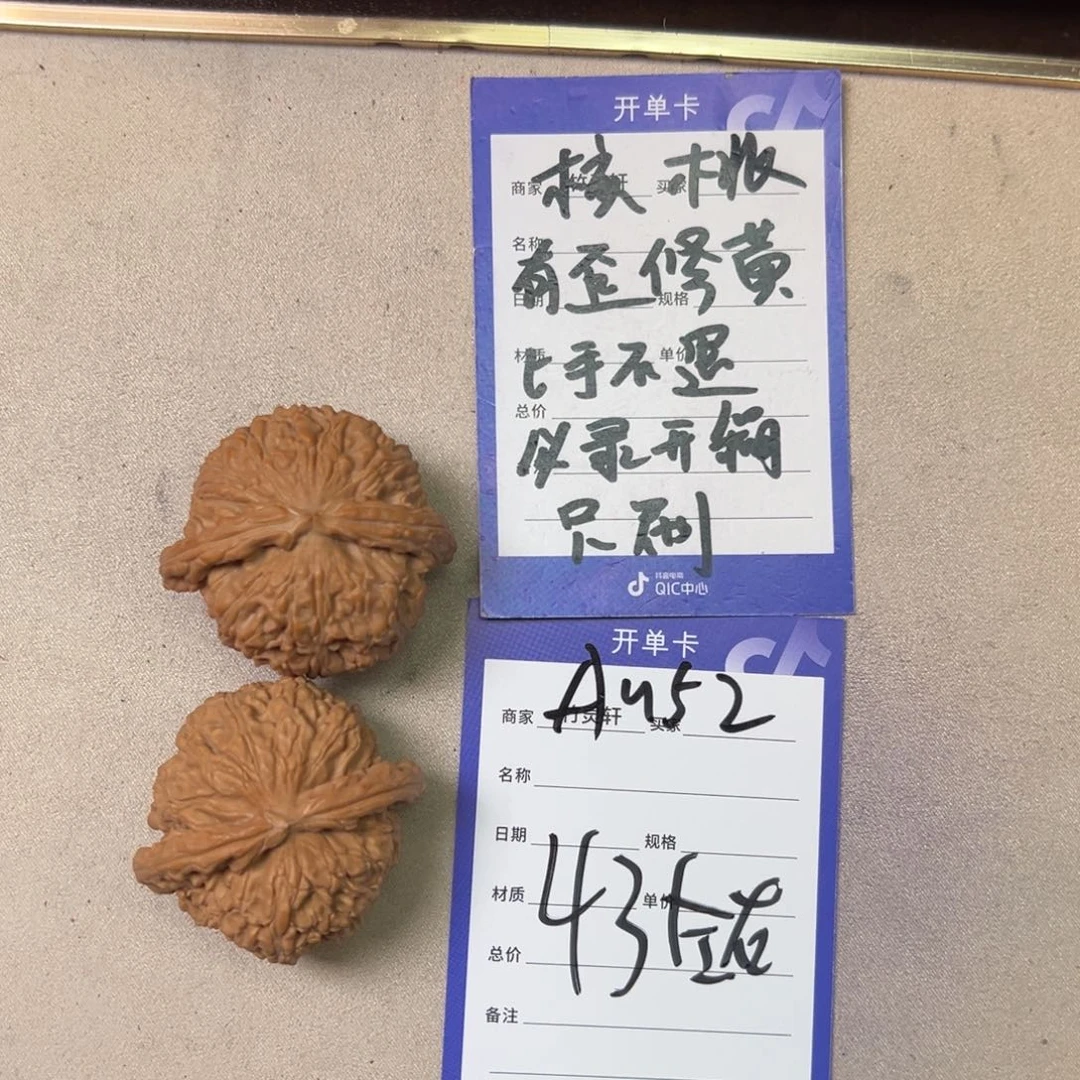 开单卡
核桃
商家 竹灵轩 买家
名称
有歪修黄
日期 规格
材质 单价
上手不退
总价
必录开箱
只刷
抖音电商
QIC中心
开单卡
A452
商家 竹灵轩 买家
名称
日期 规格
43
材质 单价
总价
备注